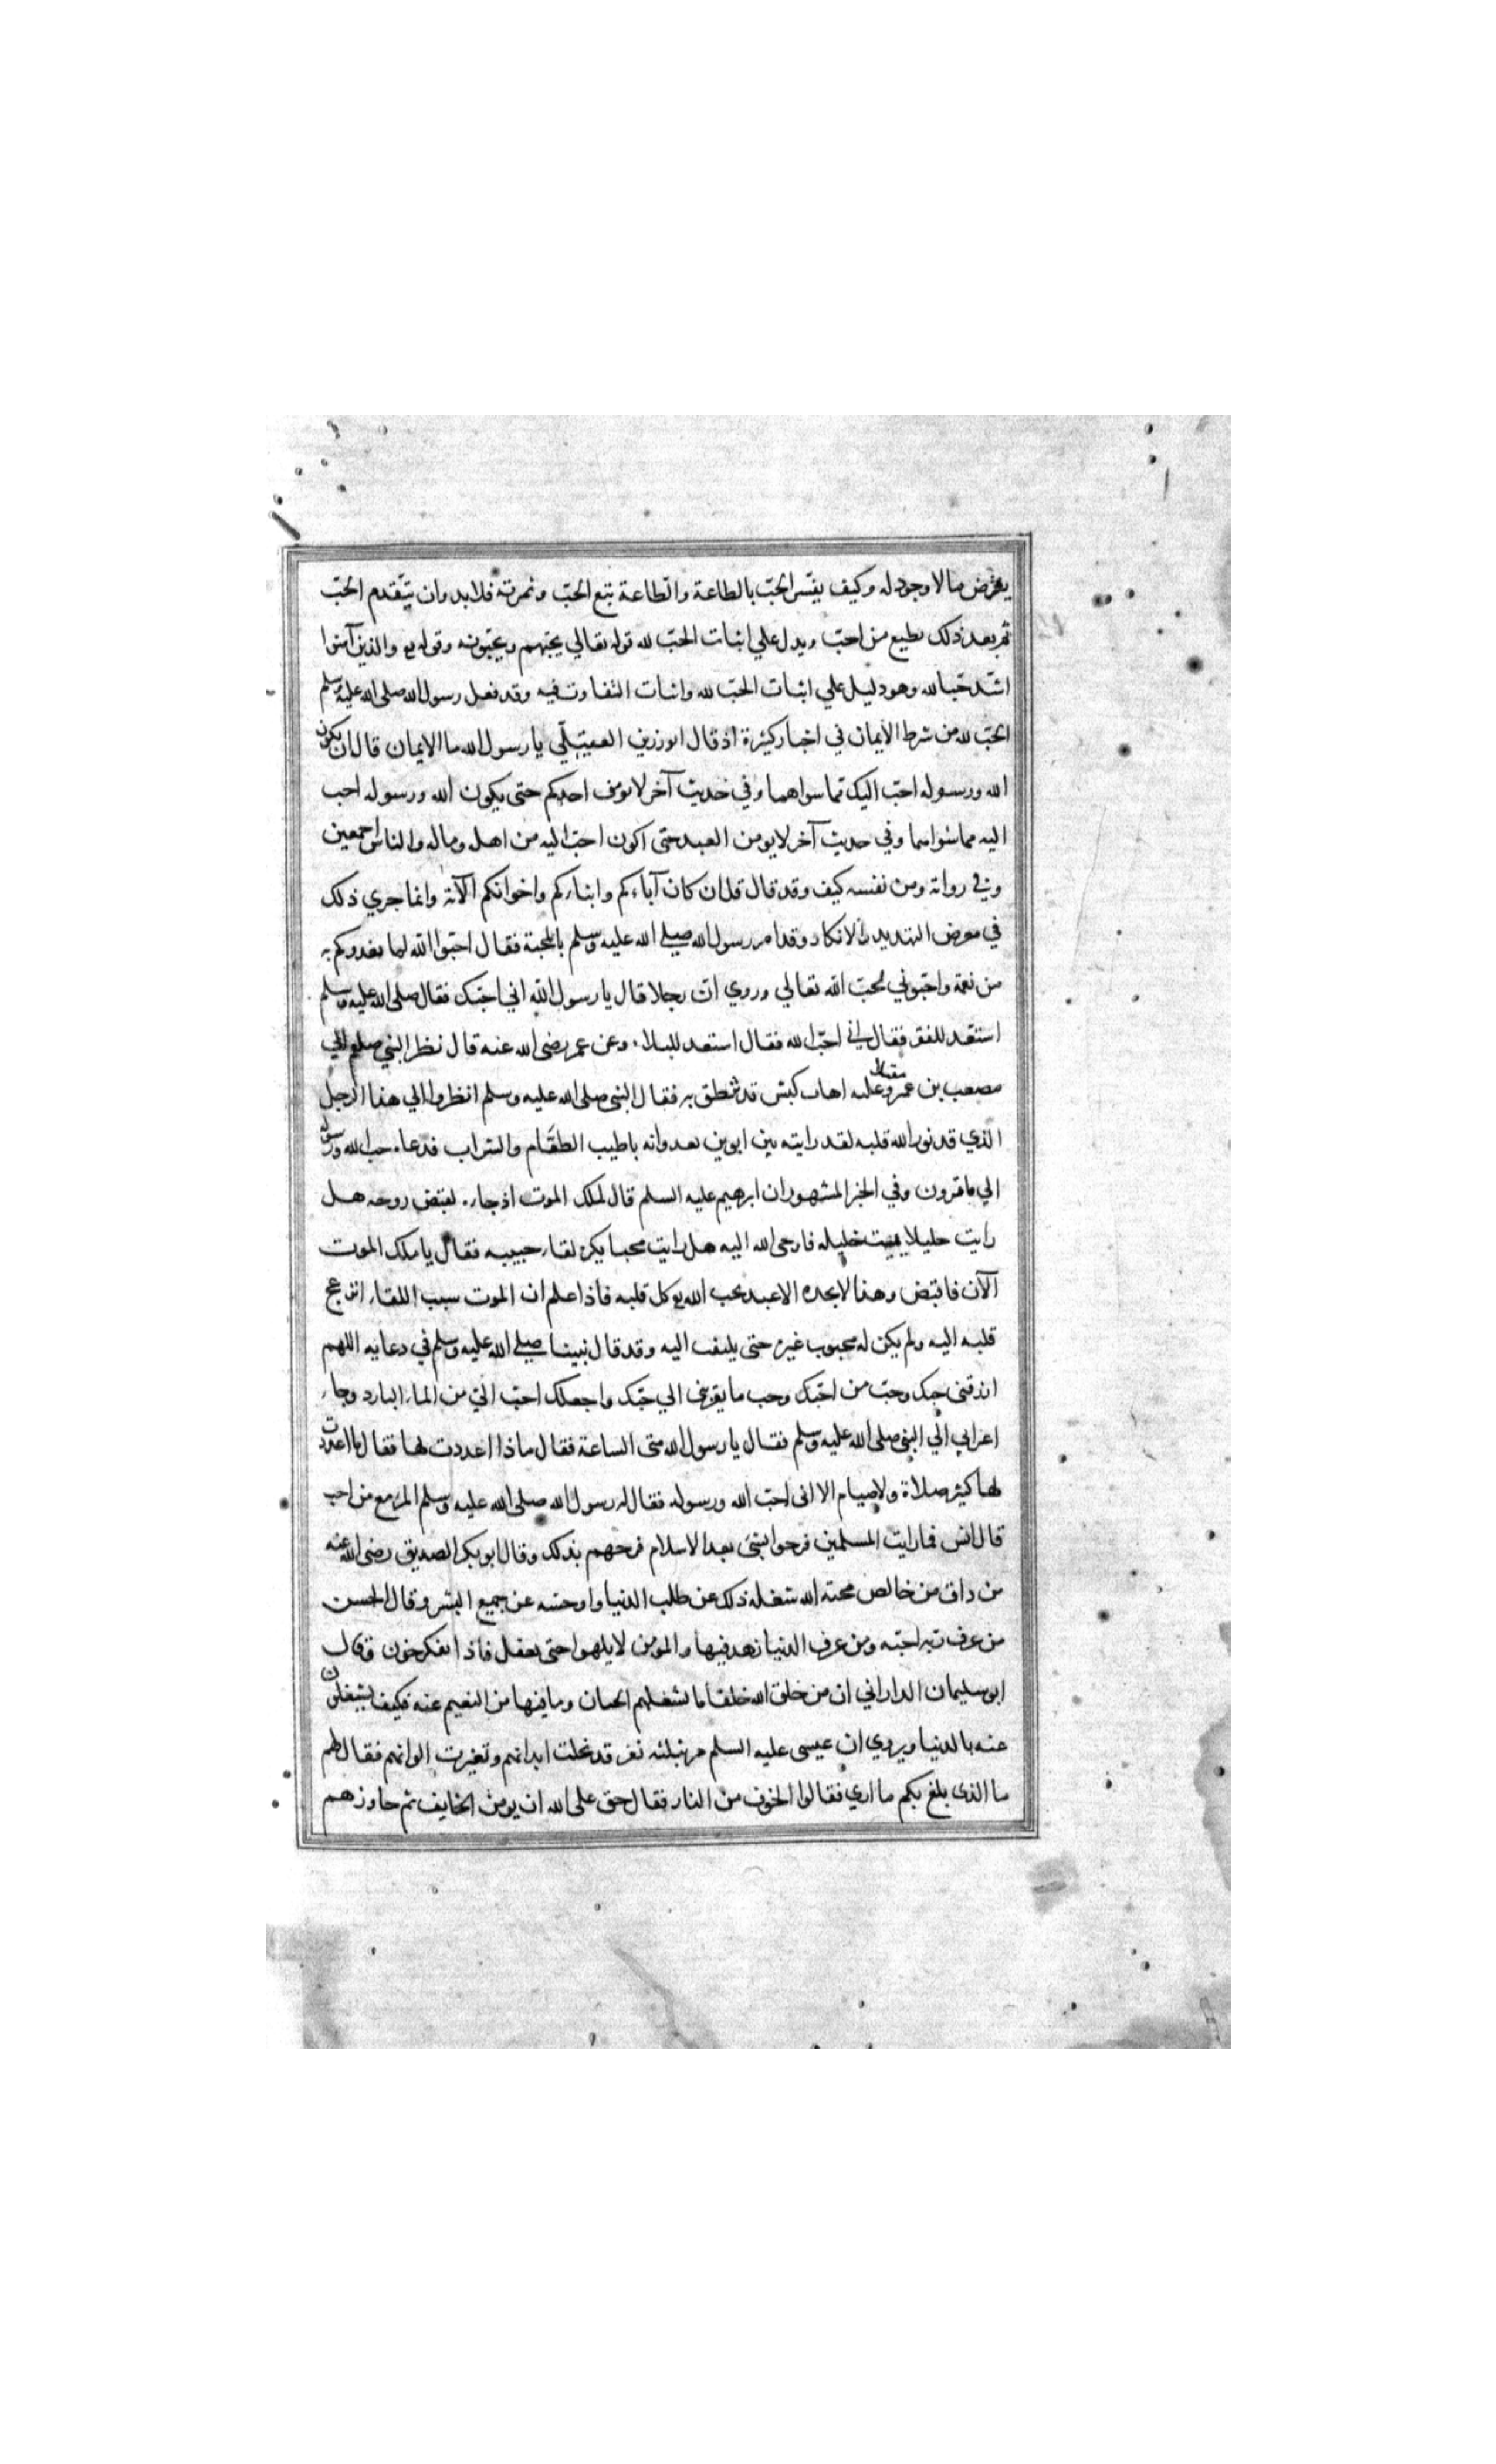 يفرض مالا وجود له وكيف يفسر الحب بالطاعة والطاعة تتبع الحب وثمرته فلا بد وان يتقدم الحب
ثم بعد ذلك يطيع من احب ويدل علي اثبات الحب لله قوله تعالي يحبهم ويحبونه وقوله تع والذين آمنوا
اشد حبا لله وهو دليل علي اثبات الحب لله واثبات التفاوت فيه وقد جعل رسول الله صلى الله عليه وسلم
الحب لله من شرط الايمان في اخبار كثيرة اذ قال ابو رزين العقيلي يا رسول الله ما الايمان قال ان يكون
الله ورسوله احب اليك مما سواهما وفي حديث آخر لا يومن احدكم حتى يكون الله ورسوله احب
اليه مما سواهما وفي حديث آخر لا يومن العبد حتى اكون احب اليه من اهله وماله والناس اجمعين
وفي رواية ومن نفسه كيف وقد قال قل ان كان آباءكم وابناءكم واخوانكم الآية وانما جري ذلك
في معرض التهديد والانكار وقد امر رسول الله صلي الله عليه وسلم بالمحبة فقال احبوا الله لما يغدوكم به
من نعمة واحبوني لحب الله تعالي وروي ان رجلا قال يا رسول الله اني احبك فقال صلى الله عليه وسلم
استعد للفقر فقال اني احب الله فقال استعد للبلاء وعن عمر رضى الله عنه قال نظر النبي صلعم الي
مصعب بن عمرو مقبلا وعليه اهاب كبش قد تنطق به فقال النبي صلى الله عليه وسلم انظروا الي هذا الرجل
الذي قد نور الله قلبه لقد رايته بين ابوين يغدوانه باطيب الطعام والشراب فدعاه حب الله ورسوله
الي ما ترون وفي الخبر المشهور ان ابرهيم عليه السلم قال لملك الموت اذ جاءه لقبض روحه هل
رايت خليلا يميت خليله فاوحى الله اليه هل رايت محبا يكره لقاء حبيبه فقال يا ملك الموت
الآن فاقبض وهذا لا يجده الا عبد يحب الله بكل قلبه فاذا علم ان الموت سبب اللقاء انزعج
قلبه اليه ولم يكن له محبوب غيره حتى يلتفت اليه وقد قال نبينا صلي الله عليه وسلم في دعايه اللهم
ارزقنى حبك وحب من احبك وحب ما يقربني الي حبك واجعلك احب الي من الماء البارد وجاء
اعرابي الي النبي صلى الله عليه وسلم فقال يا رسول الله متى الساعة فقال ماذا اعددت لها فقال ما اعددت
لها كثير صلاة ولا صيام الا انى احب الله ورسوله فقال له رسول الله صلى الله عليه وسلم المرء مع من احب
قال انس فما رايت المسلمين فرحوا بشئ بعد الاسلام فرحهم بذلك وقال ابو بكر الصديق رضى الله عنه
من ذاق من خالص محبة الله شغله ذلك عن طلب الدنيا واوحشه عن جميع البشر وقال الحسن
من عرف ربه احبه ومن عرف الدنيا زهد فيها والمومن لا يلهوا حتى يغفل فاذا تفكر حزن وقال
ابو سليمان الداراني ان من خلق الله خلقا ما يشغلهم الجنان وما فيها من النعيم عنه فكيف يشتغلون
عنه بالدنيا ويروي ان عيسى عليه السلم مر بثلثه نفر قد نحلت ابدانهم وتغيرت الوانهم فقال لهم
ما الذى بلغ بكم ما اري فقالوا الخوف من النار فقال حق على الله ان يومن الخايف ثم جاوزهم